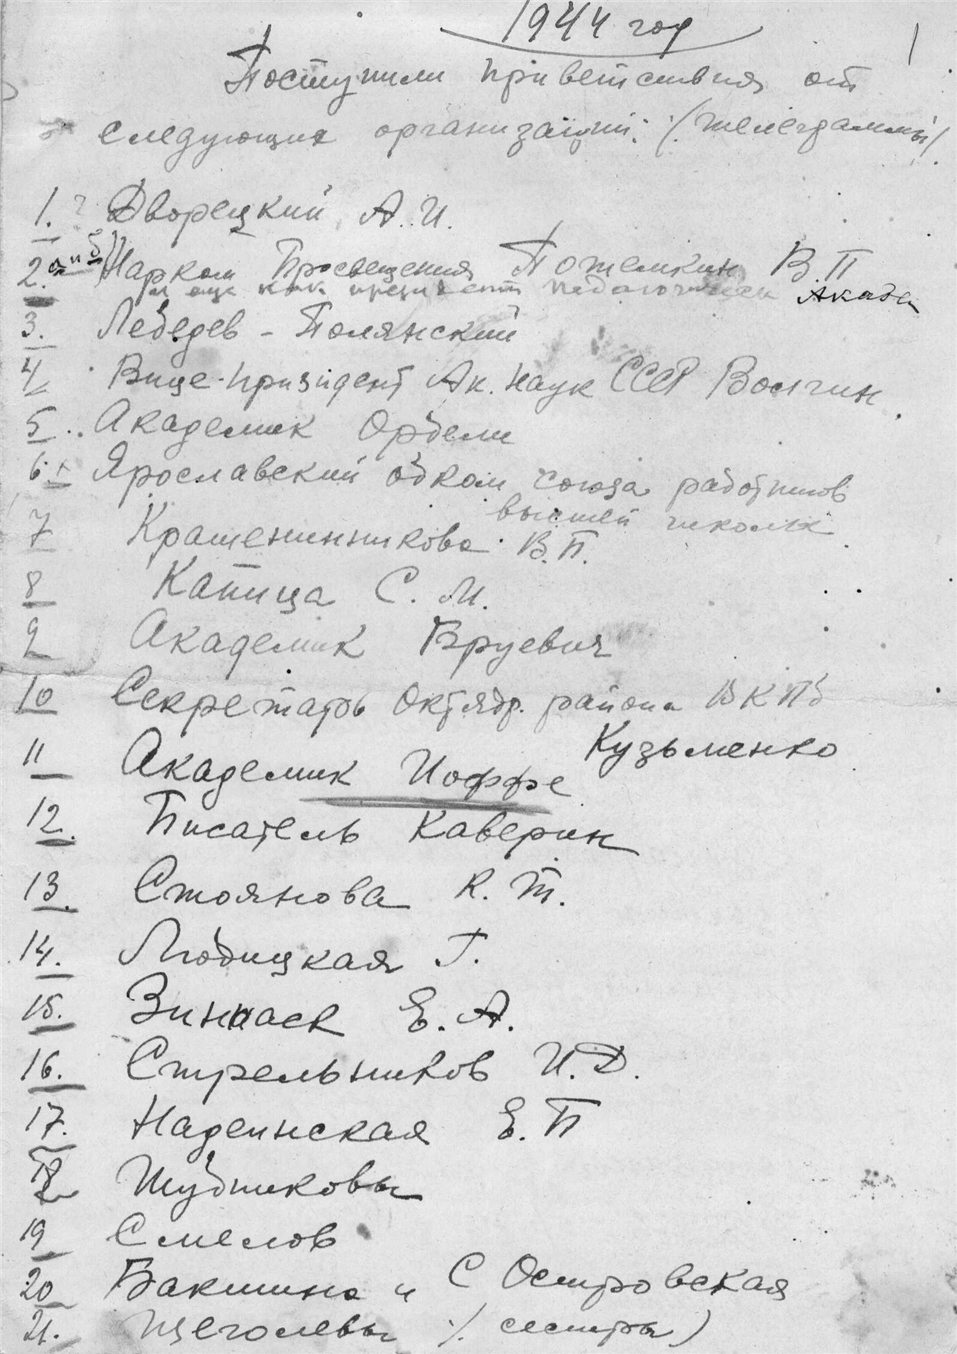 1944 год
Поступили приветствия от
следующих организаций: (телеграммы)
1. Дворецкий А. И.
2. а и б) Нарком Просвещения Потемкин В. П
и еще как президент педагогическ Акаде
3. Лебедев - Полянский
4 Вице-президент Ак. Наук СССР Волгин
5. Академик Орбели
6 Ярославский обком союза работников
высшей школы
7 Крашенинникова В. П.
8 Капица С. И.
9 Академик Бруевич
10 Секретарь Октябр. района ВКПб
Кузьменко
11 Академик Иоффе
12. Писатель Каверин
13. Стоянова К. Т.
14. Любицкая Г.
15. Е. А.
16. Стрельников И. Д.
17. Надеинская Е. П
18 Шубниковы
19 Смелов
20 Бакшина и С Островская
21. Щеголевы (сестры)